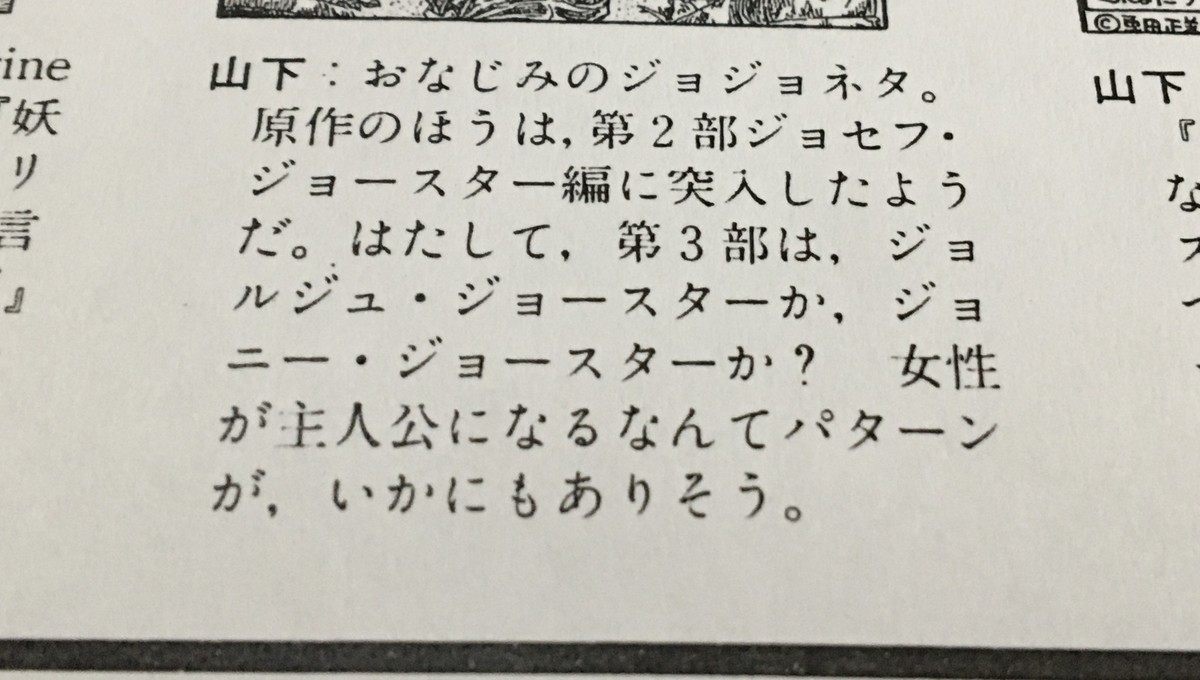 rine
『妖
リ
言
』
山下：おなじみのジョジョネタ。
原作のほうは，第２部ジョセフ・
ジョースター編に突入したよう
だ。はたして，第３部は，ジョ
ルジュ・ジョースターか，ジョ
ニー・ジョースターか？　女性
が主人公になるなんてパターン
が，いかにもありそう。
山下
『
な